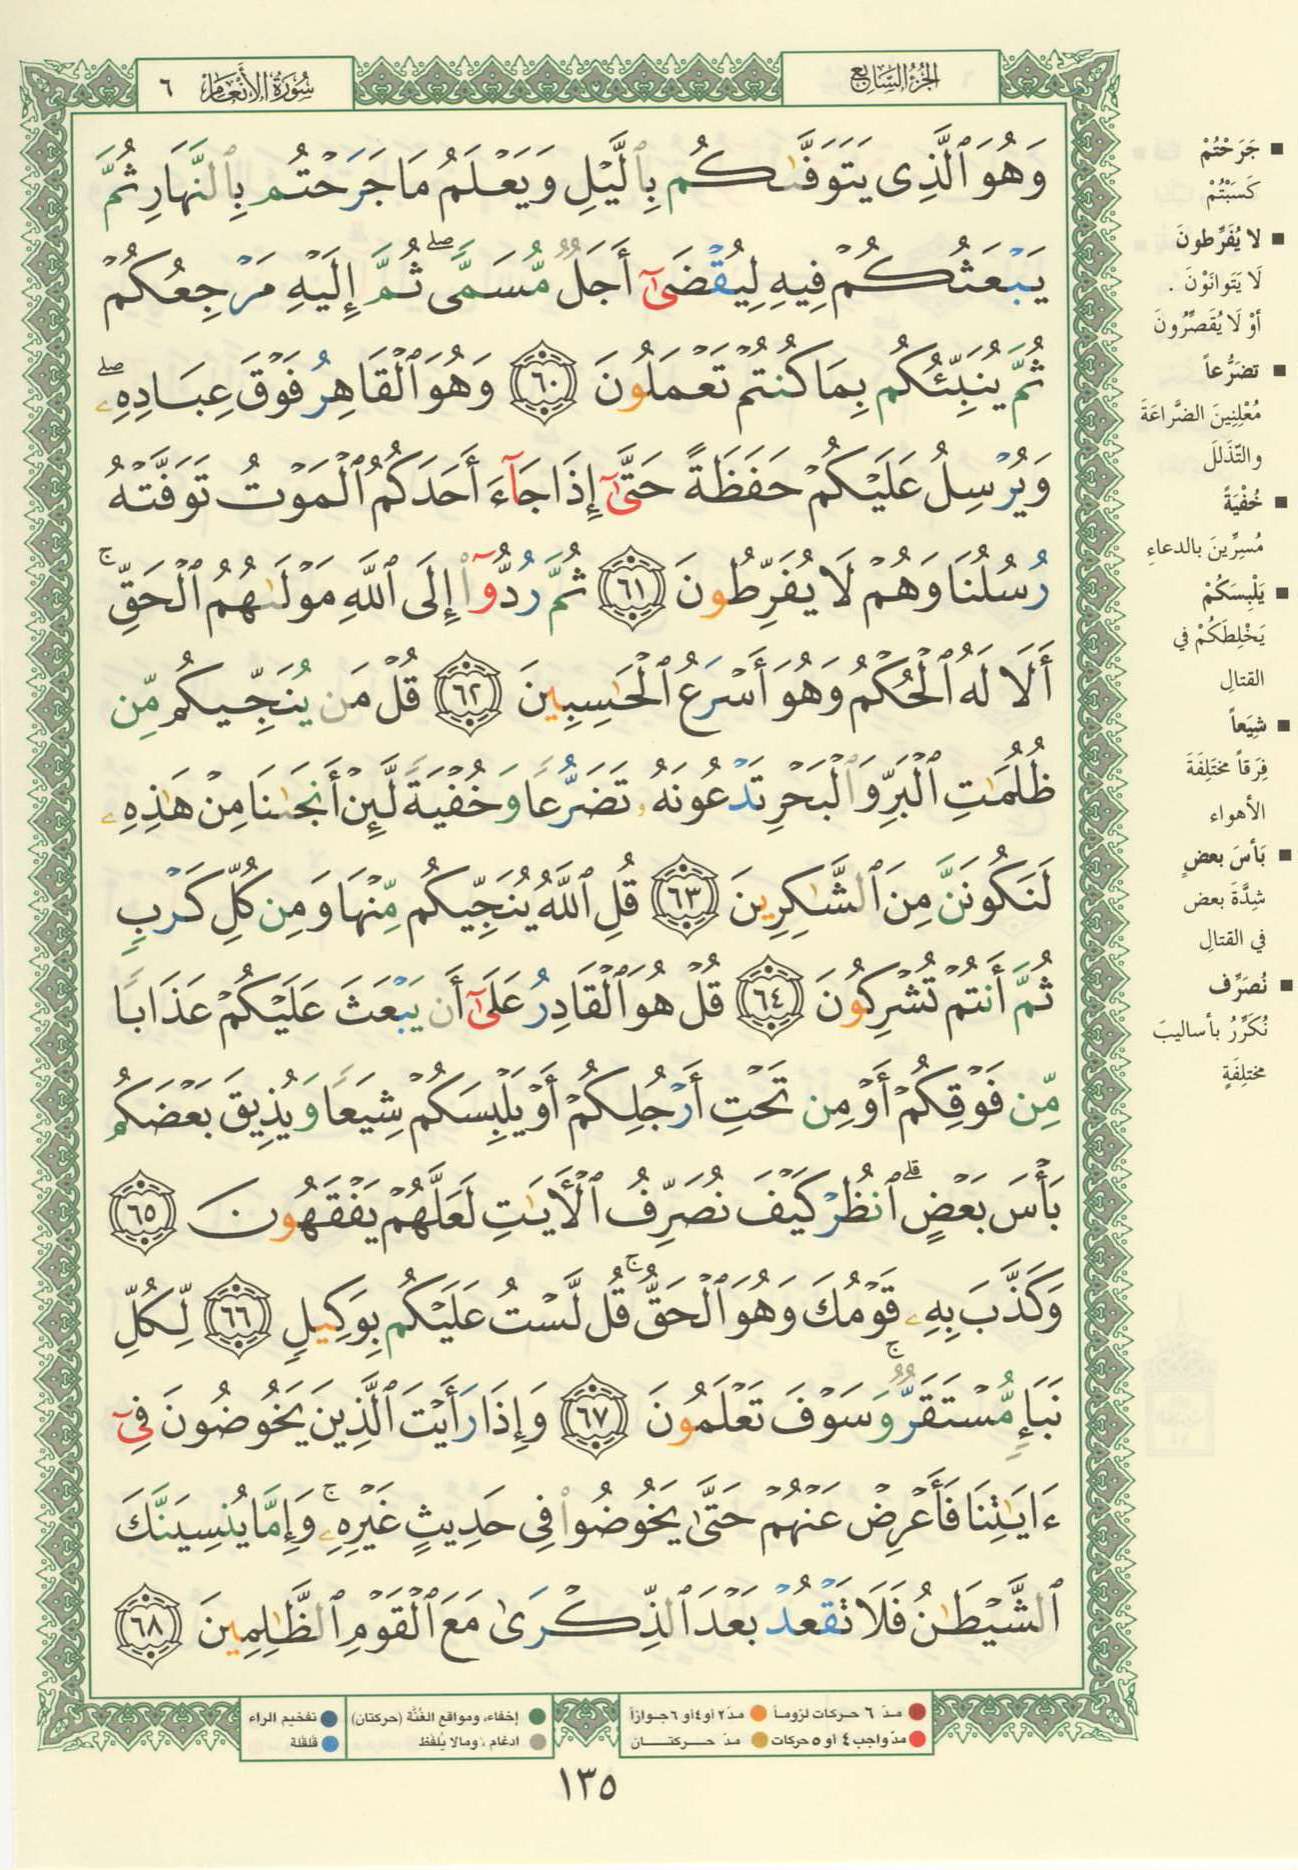 الجزء السابع
سورة الأنعام ٦
وَهُوَ ٱلَّذِى يَتَوَفَّىٰكُم بِٱلَّيْلِ وَيَعْلَمُ مَا جَرَحْتُم بِٱلنَّهَارِ ثُمَّ
يَبْعَثُكُمْ فِيهِ لِيُقْضَىٰٓ أَجَلٌ مُّسَمًّى ۖ ثُمَّ إِلَيْهِ مَرْجِعُكُمْ
ثُمَّ يُنَبِّئُكُم بِمَا كُنتُمْ تَعْمَلُونَ ٦٠ وَهُوَ ٱلْقَاهِرُ فَوْقَ عِبَادِهِۦ ۖ
وَيُرْسِلُ عَلَيْكُمْ حَفَظَةً حَتَّىٰٓ إِذَا جَآءَ أَحَدَكُمُ ٱلْمَوْتُ تَوَفَّتْهُ
رُسُلُنَا وَهُمْ لَا يُفَرِّطُونَ ٦١ ثُمَّ رُدُّوٓا۟ إِلَى ٱللَّهِ مَوْلَىٰهُمُ ٱلْحَقِّ ۚ
أَلَا لَهُ ٱلْحُكْمُ وَهُوَ أَسْرَعُ ٱلْحَٰسِبِينَ ٦٢ قُلْ مَن يُنَجِّيكُم مِّن
ظُلُمَٰتِ ٱلْبَرِّ وَٱلْبَحْرِ تَدْعُونَهُۥ تَضَرُّعًا وَخُفْيَةً لَّئِنْ أَنجَىٰنَا مِنْ هَٰذِهِۦ
لَنَكُونَنَّ مِنَ ٱلشَّٰكِرِينَ ٦٣ قُلِ ٱللَّهُ يُنَجِّيكُم مِّنْهَا وَمِن كُلِّ كَرْبٍ
ثُمَّ أَنتُمْ تُشْرِكُونَ ٦٤ قُلْ هُوَ ٱلْقَادِرُ عَلَىٰٓ أَن يَبْعَثَ عَلَيْكُمْ عَذَابًا
مِّن فَوْقِكُمْ أَوْ مِن تَحْتِ أَرْجُلِكُمْ أَوْ يَلْبِسَكُمْ شِيَعًا وَيُذِيقَ بَعْضَكُم
بَأْسَ بَعْضٍ ۗ ٱنظُرْ كَيْفَ نُصَرِّفُ ٱلْـَٔايَٰتِ لَعَلَّهُمْ يَفْقَهُونَ ٦٥
وَكَذَّبَ بِهِۦ قَوْمُكَ وَهُوَ ٱلْحَقُّ ۚ قُل لَّسْتُ عَلَيْكُم بِوَكِيلٍ ٦٦ لِّكُلِّ
نَبَإٍ مُّسْتَقَرٌّ ۚ وَسَوْفَ تَعْلَمُونَ ٦٧ وَإِذَا رَأَيْتَ ٱلَّذِينَ يَخُوضُونَ فِىٓ
ءَايَٰتِنَا فَأَعْرِضْ عَنْهُمْ حَتَّىٰ يَخُوضُوا۟ فِى حَدِيثٍ غَيْرِهِۦ ۚ وَإِمَّا يُنسِيَنَّكَ
ٱلشَّيْطَٰنُ فَلَا تَقْعُدْ بَعْدَ ٱلذِّكْرَىٰ مَعَ ٱلْقَوْمِ ٱلظَّٰلِمِينَ ٦٨
■ جَرَحْتُمْ
كَسَبْتُمْ
■ لا يُفَرِّطونَ
لَا يَتَوانَوْنَ .
أوْ لَا يُقَصِّرُونَ
■ تضَرُّعاً
مُعْلِنِينَ الضَّرَاعَةَ
والتّذَلُّلَ
■ خُفْيَةً
مُسِرِّينَ بالدعاءِ
■ يَلْبِسَكُمْ
يَخْلِطَكُمْ في
القتالِ
■ شِيَعاً
فِرَقاً مختَلِفَةَ
الأهواء
■ بَأسَ بعضٍ
شِدَّةَ بعض
في القتالِ
■ نُصَرِّف
نُكَرِّرُ بأساليبَ
مختلِفَةٍ
مدّ ٦ حركات لزوماً مدّ ٢ أو ٤ أو ٦ جوازاً
مدّ واجب ٤ أو ٥ حركات مدّ حركتــان
إخفاء، ومواقع الغُنَّة (حركتان) تفخيم الراء
ادغام ، ومالا يُلفَظ قلقلة
١٣٥